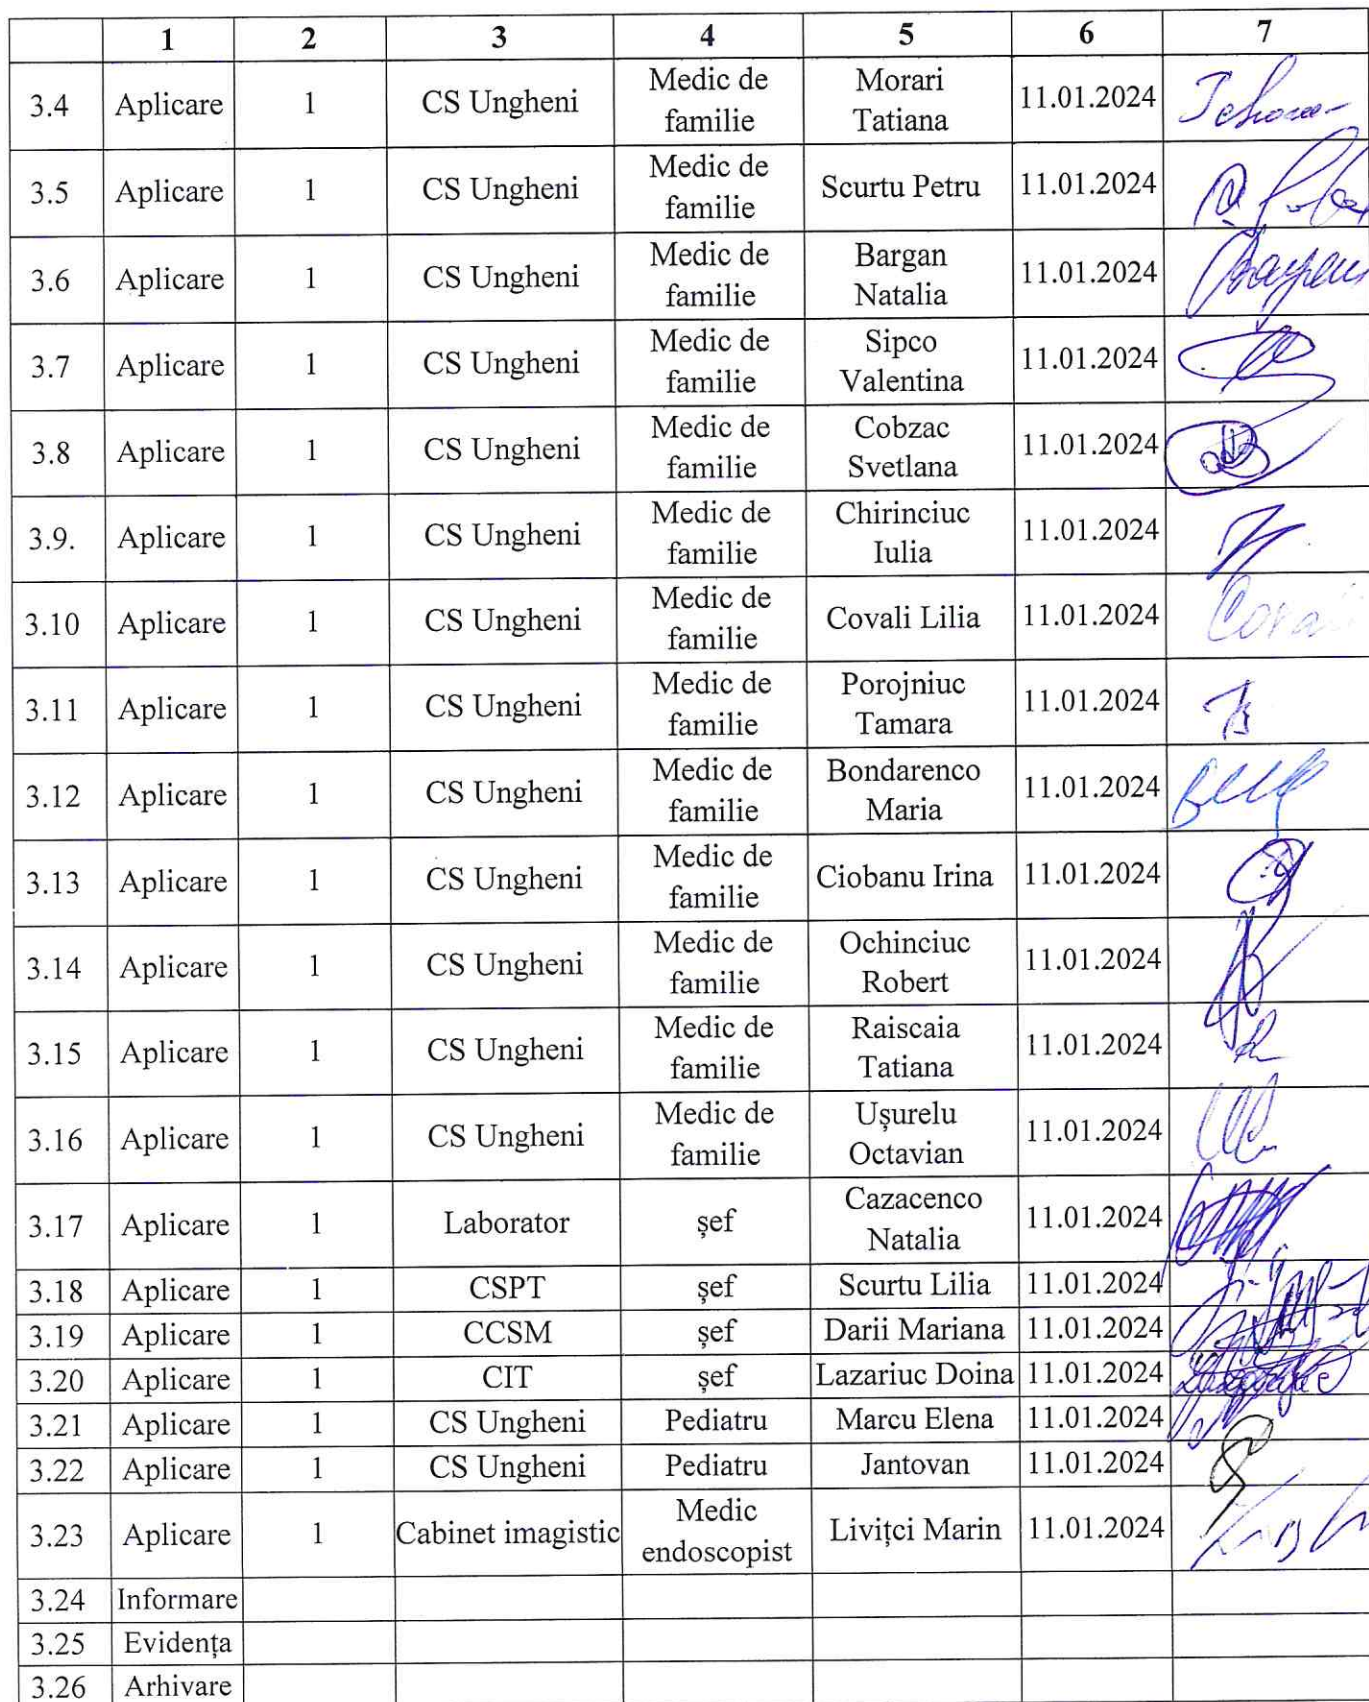 1 2 3 4 5 6 7
3.4 Aplicare 1 CS Ungheni Medic de familie Morari Tatiana 11.01.2024
3.5 Aplicare 1 CS Ungheni Medic de familie Scurtu Petru 11.01.2024
3.6 Aplicare 1 CS Ungheni Medic de familie Bargan Natalia 11.01.2024
3.7 Aplicare 1 CS Ungheni Medic de familie Sipco Valentina 11.01.2024
3.8 Aplicare 1 CS Ungheni Medic de familie Cobzac Svetlana 11.01.2024
3.9. Aplicare 1 CS Ungheni Medic de familie Chirinciuc Iulia 11.01.2024
3.10 Aplicare 1 CS Ungheni Medic de familie Covali Lilia 11.01.2024 Covali
3.11 Aplicare 1 CS Ungheni Medic de familie Porojniuc Tamara 11.01.2024
3.12 Aplicare 1 CS Ungheni Medic de familie Bondarenco Maria 11.01.2024
3.13 Aplicare 1 CS Ungheni Medic de familie Ciobanu Irina 11.01.2024
3.14 Aplicare 1 CS Ungheni Medic de familie Ochinciuc Robert 11.01.2024
3.15 Aplicare 1 CS Ungheni Medic de familie Raiscaia Tatiana 11.01.2024
3.16 Aplicare 1 CS Ungheni Medic de familie Ușurelu Octavian 11.01.2024
3.17 Aplicare 1 Laborator șef Cazacenco Natalia 11.01.2024
3.18 Aplicare 1 CSPT șef Scurtu Lilia 11.01.2024
3.19 Aplicare 1 CCSM șef Darii Mariana 11.01.2024
3.20 Aplicare 1 CIT șef Lazariuc Doina 11.01.2024
3.21 Aplicare 1 CS Ungheni Pediatru Marcu Elena 11.01.2024
3.22 Aplicare 1 CS Ungheni Pediatru Jantovan 11.01.2024
3.23 Aplicare 1 Cabinet imagistic Medic endoscopist Livițci Marin 11.01.2024
3.24 Informare
3.25 Evidența
3.26 Arhivare